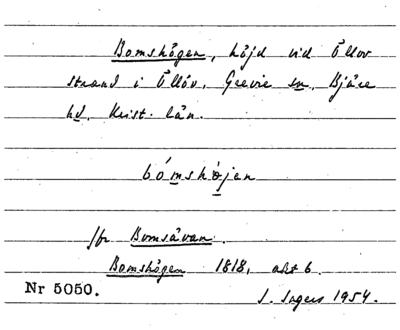 Bomshögen, höjd vid Öllöv
strand i Öllöv, Grevie sn, Bjäre
hd, Krist. län.
bómshøjen
jfr Bomsåvan.
Bomshögen 1818, akt 6.
Nr 5050.
1954.